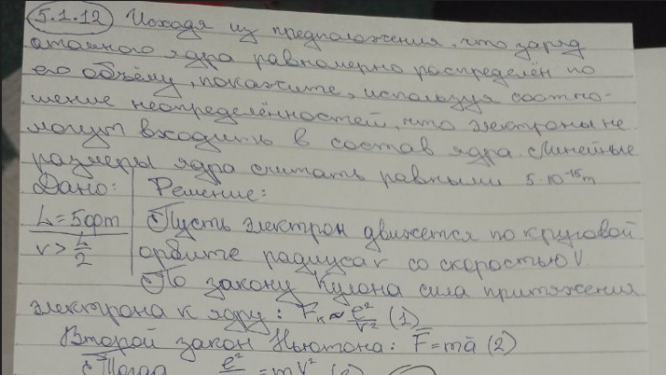 5.1.12 Исходя из предположения, что заряд
атомного ядра равномерно распределён по
его объёму, покажите, используя соотно-
шение неопределённостей, что электроны не
могут входить в состав ядра. Линейные
размеры ядра считать равными 5·10⁻¹⁵m
Дано: Решение:
L = 5фm Пусть электрон движется по круговой
r > L/2 орбите радиуса r со скоростью V
По закону Кулона сила притяжения
электрона к ядру: Fк ~ e²/r² (1)
Второй закон Ньютона: F = ma (2)
Тогда e² = mV²